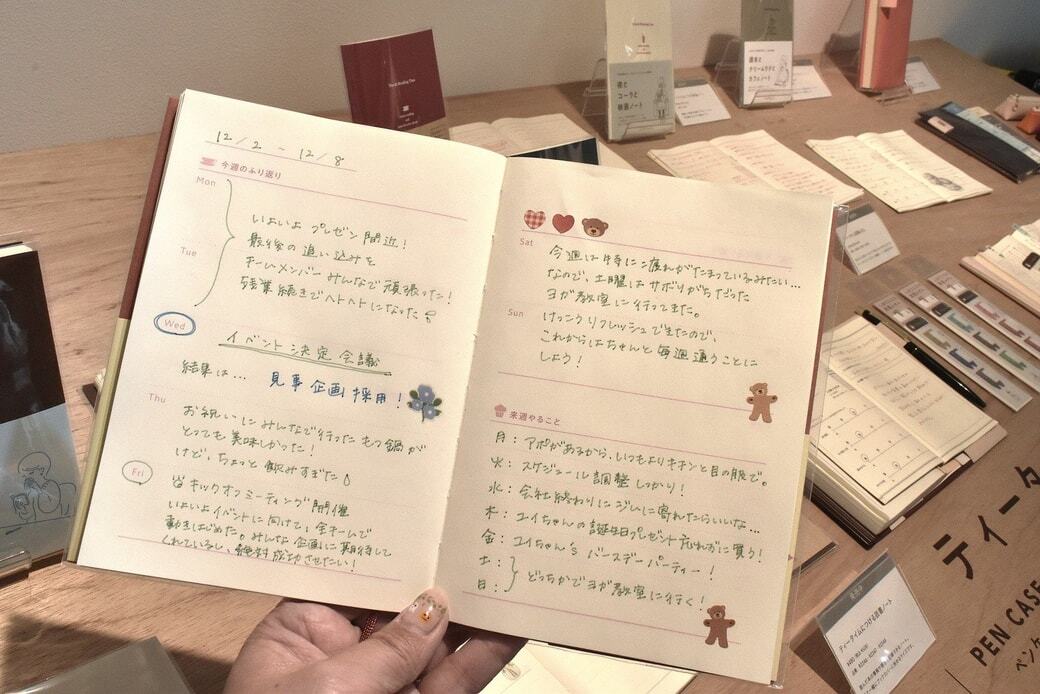 12/2 ~ 12/8
今週のふり返り
Mon
Tue
いよいよ プレゼン間近!
最後の追い込みを
チームメンバーみんなで頑張った!
残業続きでヘトヘトになった
Wed
イベント決定会議
結果は… 見事企画採用!
Thu
お祝いにみんなで行ったもつ鍋が
とっても美味しかった!
けど、ちょっと飲みすぎた
Fri
キックオフミーティング開催
いよいよイベントに向けて!全チームで
動きはじめた。みんな企画に期待して
くれているし、絶対成功させたい!
Sat
今週は特に疲れがたまっているみたい…
なので、土曜はサボりがちだった
ヨガ教室に行ってきた。
Sun
けっこうリフレッシュできたので、
これからはちゃんと毎週通うことに
しよう!
来週やること
月:アポがあるから、いつもよりキチンと目の服で。
火:スケジュール調整しっかり!
水:会社終わりにジムに寄れたらいいな…
木:ユイちゃんの誕生日プレゼント忘れずに買う!
金:ユイちゃん's バースデーパーティー!
土:
日:
どっちかでヨガ教室に行く!
夜と
コーラと
映画ノート
週末と
クリームソーダと
カフェノート
ティータイムにつける日要ノート
ティータ
PEN CASE
ペンケ